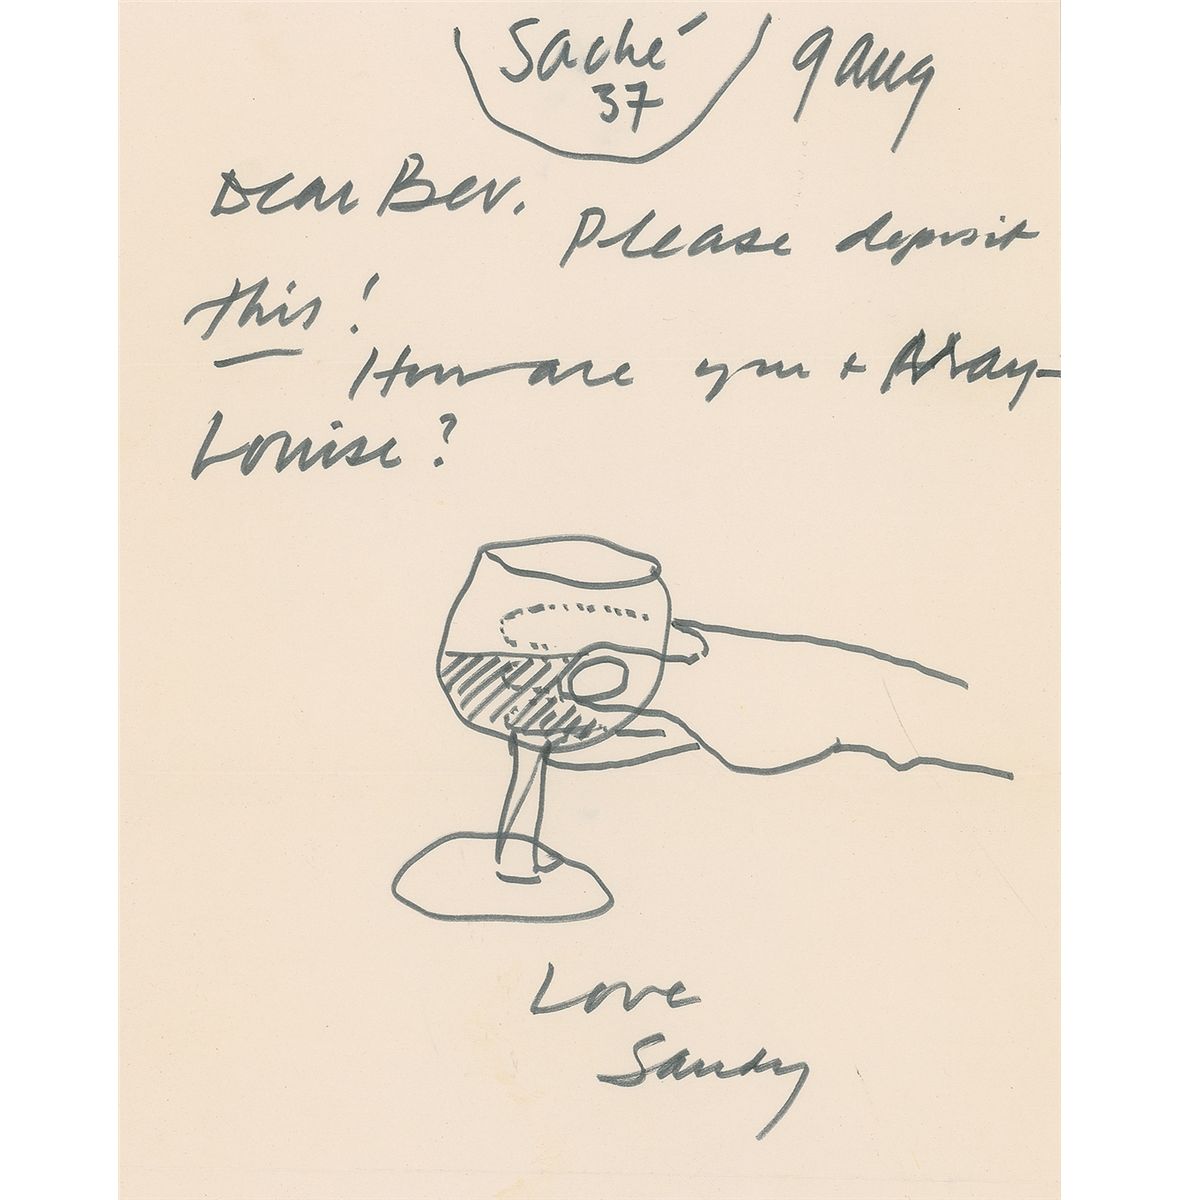 Saché 9 aug
37
Dear Bev.
Please deposit
this!
How are you + May-
Louise?
Love
Sandy